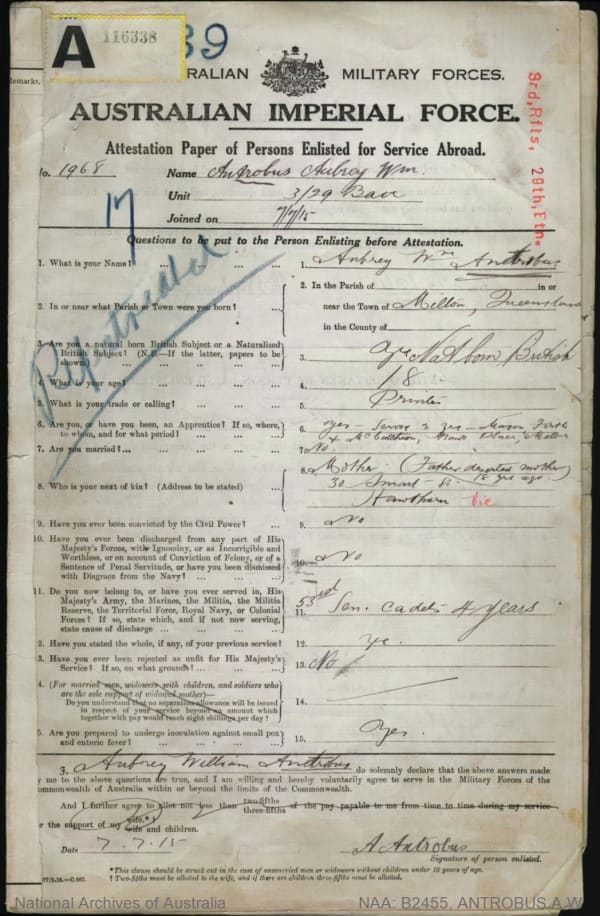 A 116338 39
RALIAN MILITARY FORCES.
Remarks.
AUSTRALIAN IMPERIAL FORCE.
3rd, Rfts, 29th, Btn.
Attestation Paper of Persons Enlisted for Service Abroad.
No. 1968 Name Antrobus Aubrey Wm.
Unit 3/29 Batt
Joined on 7/7/15
17
Questions to be put to the Person Enlisting before Attestation.
1. What is your Name? ... ... ... ... 1. Aubrey Wm Antrobus
2. In or near what Parish or Town were you born? ... ... 2. In the Parish of in or
near the Town of Milton, Queensland
in the County of
3. Are you a natural born British Subject or a Naturalized
British Subject? (N.B.—If the latter, papers to be
shown.) ... ... ... 3. Yes Nat born British
4. What is your age? ... ... ... 4. 18
5. What is your trade or calling? ... ... ... 5. Printer
6. Are you, or have you been, an Apprentice? If so, where,
to whom, and for what period? ... ... 6. Yes – Served 2 yrs – Mason, Firth
& McCutcheon,
7. Are you married? ... ... ... 7. No
8. Who is your next of kin? (Address to be stated) ... 8. Mother (Father deserted mother
30 Smart St. 18 yrs ago)
Hawthorn Vic
9. Have you ever been convicted by the Civil Power? ... 9. No
10. Have you ever been discharged from any part of His
Majesty's Forces, with Ignominy, or as Incorrigible and
Worthless, or on account of Conviction of Felony, or of a
Sentence of Penal Servitude, or have you been dismissed
with Disgrace from the Navy? ... ... 10. No
11. Do you now belong to, or have you ever served in, His
Majesty's Army, the Marines, the Militia, the Militia
Reserve, the Territorial Force, Royal Navy, or Colonial
Forces? If so, state which, and if not now serving,
state cause of discharge ... ... 11. 53rd Sen. Cadets 4 years
2. Have you stated the whole, if any, of your previous service? 12. Yes.
3. Have you ever been rejected as unfit for His Majesty's
Service? If so, on what grounds? ... ... 13. No
4. (For married men, widowers with children, and soldiers who
are the sole support of widowed mother)—
Do you understand that no separation allowance will be issued
in respect of your service beyond an amount which
together with pay would reach eight shillings per day? 14.
5. Are you prepared to undergo inoculation against small pox
and enteric fever? ... ... ... 15. Yes.
I, Aubrey William Antrobus do solemnly declare that the above answers made
by me to the above questions are true, and I am willing and hereby voluntarily agree to serve in the Military Forces of the
Commonwealth of Australia within or beyond the limits of the Commonwealth.
And I further agree to allot not less than two-fifths three-fifths of the pay payable to me from time to time during my service
for the support of my wife.* wife and children.
Date 7.7.15 A Antrobus
Signature of person enlisted.
*This clause should be struck out in the case of unmarried men or widowers without children under 18 years of age.
† Two-fifths must be allotted to the wife, and if there are children three-fifths must be allotted.
National Archives of Australia NAA: B2455, ANTROBUS A W